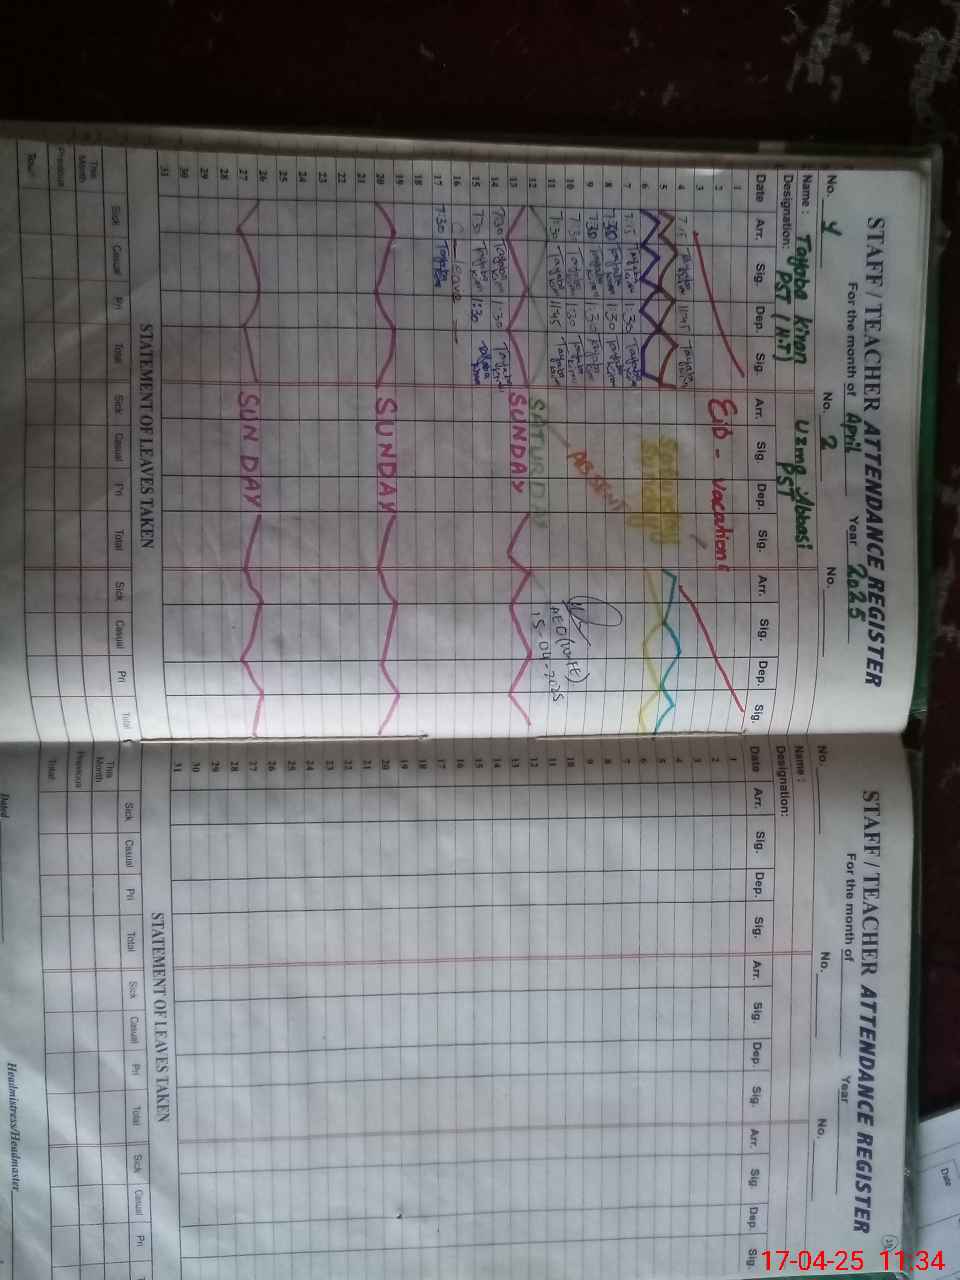 STAFF / TEACHER ATTENDANCE REGISTER
For the month of April Year 2025
No. 1 No. 2 No.
Name : Tayaba Kiran Uzma Abbasi
Designation: PST (H.T) PST
Date Arr. Sig. Dep. Sig. Arr. Sig. Dep. Sig. Arr. Sig. Dep. Sig.
1
2 Eid - vacations
3
4 7:15 Tayaba Kiran 11:45 Tayaba Kiran
5
6
7 7:15 Tayaba Kiran 1:30 Tayaba Kiran
8 7:30 Tayaba Kiran 1:30 Tayaba Kiran
9 7:30 Tayaba Kiran 1:30 Tayaba Kiran
10 7:30 Tayaba Kiran 1:30 Tayaba Kiran ABSENT
11 7:30 Tayaba Kiran 11:45 Tayaba Kiran
AEO
15-04-2025
12 SATURDAY
13 SUNDAY
14 7:30 Tayaba Kiran 1:30 Tayaba Kiran
15 7:30 Tayaba Kiran 1:30 Tayaba Kiran
16 Leave
17 7:30 Tayaba Kiran
18
19
20 SUNDAY
21
22
23
24
25
26
27 SUNDAY
28
29
30
31
STATEMENT OF LEAVES TAKEN
Sick Casual Pri Total Sick Casual Pri Total Sick Casual Pri Total
This Month
Previous
Total
STAFF / TEACHER ATTENDANCE REGISTER
For the month of Year
No. No. No.
Name :
Designation:
Date Arr. Sig. Dep. Sig. Arr. Sig. Dep. Sig. Arr. Sig. Dep. Sig.
1
2
3
4
5
6
7
8
9
10
11
12
13
14
15
16
17
18
19
20
21
22
23
24
25
26
27
28
29
30
31
STATEMENT OF LEAVES TAKEN
Sick Casual Pri Total Sick Casual Pri Total Sick Casual Pri
This Month
Previous
Total
Dated
Headmistress/Headmaster
Date
17-04-25 11:34